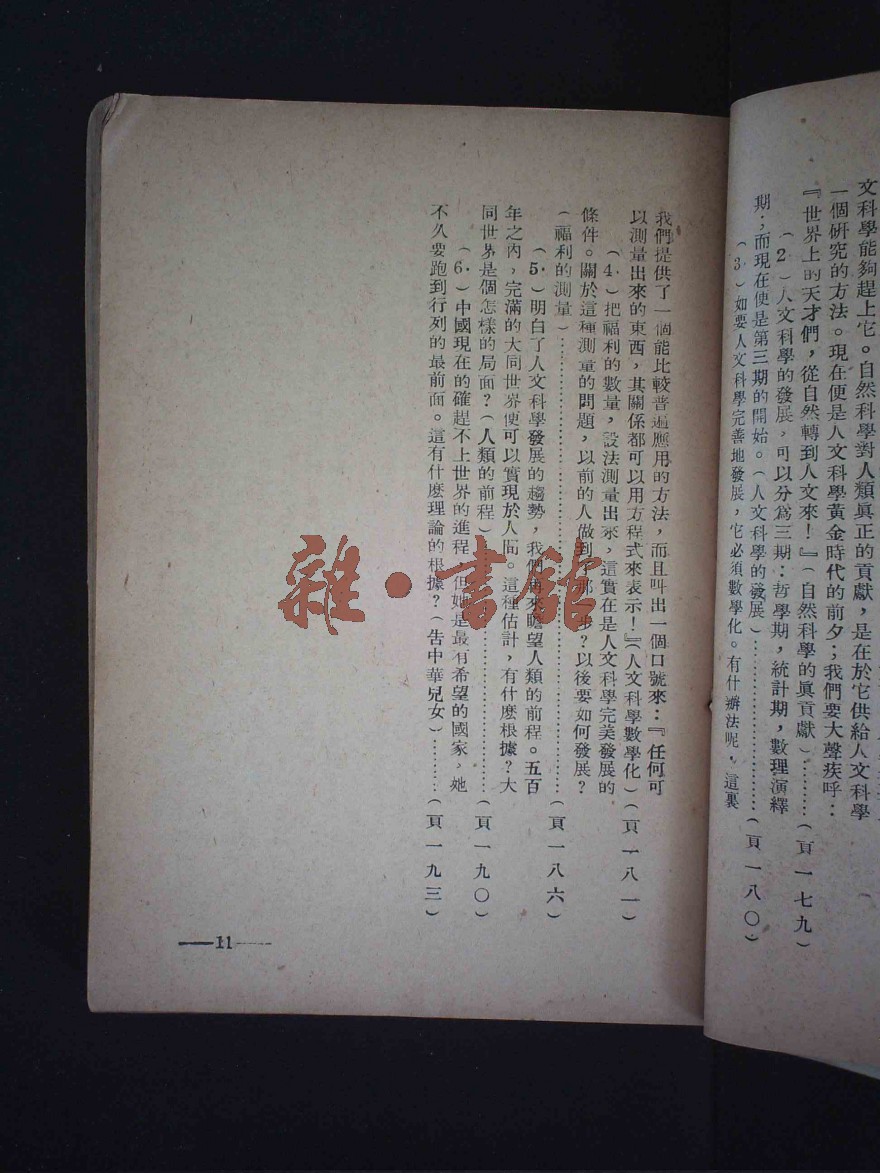 文科學能夠趕上它。自然科學對人類眞正的貢獻，是在於它供給人文科學
一個研究的方法。現在便是人文科學黃金時代的前夕；我們要大聲疾呼：
『世界上的天才們，從自然轉到人文來！』（自然科學的眞貢獻）………（頁一七九）
（2）人文科學的發展，可以分爲三期：哲學期，統計期，數理演繹
期；而現在便是第三期的開始。（人文科學的發展）………………（頁一八〇）
（3.）如要人文科學完善地發展，它必須數學化。有什辦法呢，這裏
我們提供了一個能比較普遍應用的方法，而且叫出一個口號來：『任何可
以測量出來的東西，其關係都可以用方程式來表示！』（人文科學數學化）（頁一八一）
（4.）把福利的數量，設法測量出來，這實在是人文科學完美發展的
條件。關於這種測量的問題，以前的人做到了那一步？以後要如何發展？
（福利的測量）………………………………（頁一八六）
（5.）明白了人文科學發展的趨勢，我們再來瞻望人類的前程。五百
年之內，完滿的大同世界便可以實現於人間。這種估計，有什麽根據？大
同世界是個怎樣的局面？（人類的前程）………………………（頁一九〇）
（6.）中國現在的確趕不上世界的進程，但她是最有希望的國家，她
不久要跑到行列的最前面。這有什麽理論的根據？（告中華兒女）………（頁一九三）
——11——
雜·書館